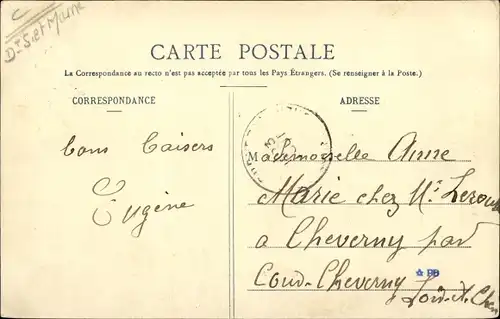 C
Dt S. et Marne
CARTE POSTALE
La Correspondance au recto n'est pas acceptée par tous les Pays Étrangers. (Se renseigner à la Poste.)
CORRESPONDANCE
ADRESSE
bons baisers
Eugène
Mademoiselle Anne
Marie chez Mr
a Cheverny par
Cour-Cheverny
Loir-et-Cher